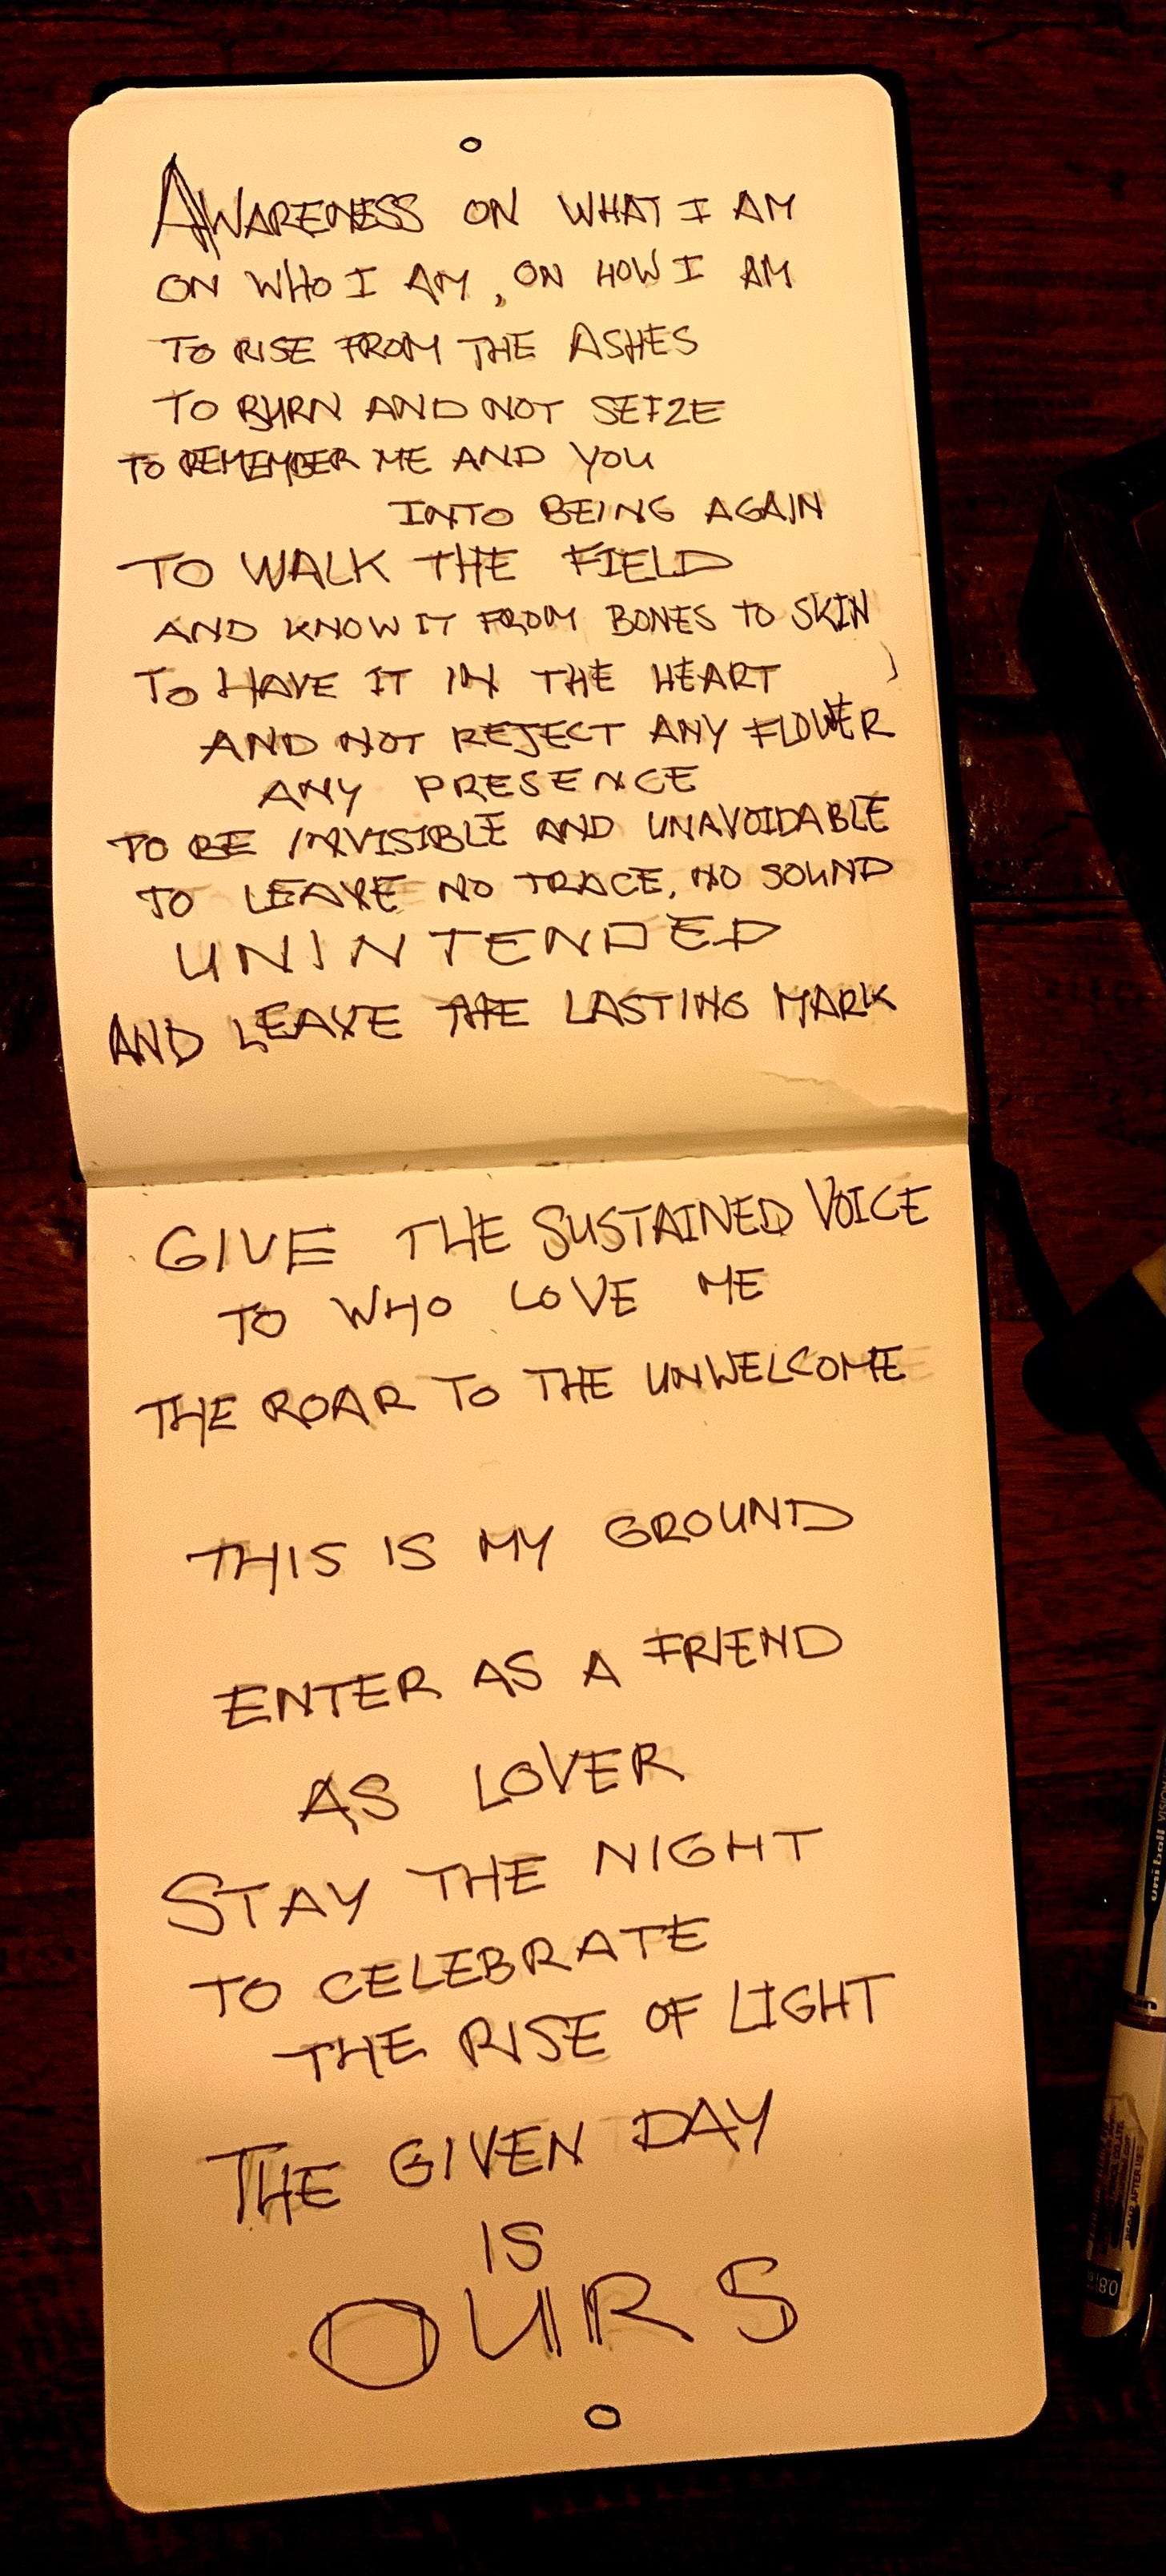 AWARENESS ON WHAT I AM
ON WHO I AM, ON HOW I AM
TO RISE FROM THE ASHES
TO BURN AND NOT SEIZE
TO REMEMBER ME AND YOU
INTO BEING AGAIN
TO WALK THE FIELD
AND KNOW IT FROM BONES TO SKIN
TO HAVE IT IN THE HEART
AND NOT REJECT ANY FLOWER
ANY PRESENCE
TO BE INVISIBLE AND UNAVOIDABLE
TO LEAVE NO TRACE, NO SOUND
UNINTENDED
AND LEAVE THE LASTING MARK
GIVE THE SUSTAINED VOICE
TO WHO LOVE ME
THE ROAR TO THE UNWELCOME
THIS IS MY GROUND
ENTER AS A FRIEND
AS LOVER
STAY THE NIGHT
TO CELEBRATE
THE RISE OF LIGHT
THE GIVEN DAY
IS
OURS
uni-ball VISION
0.8